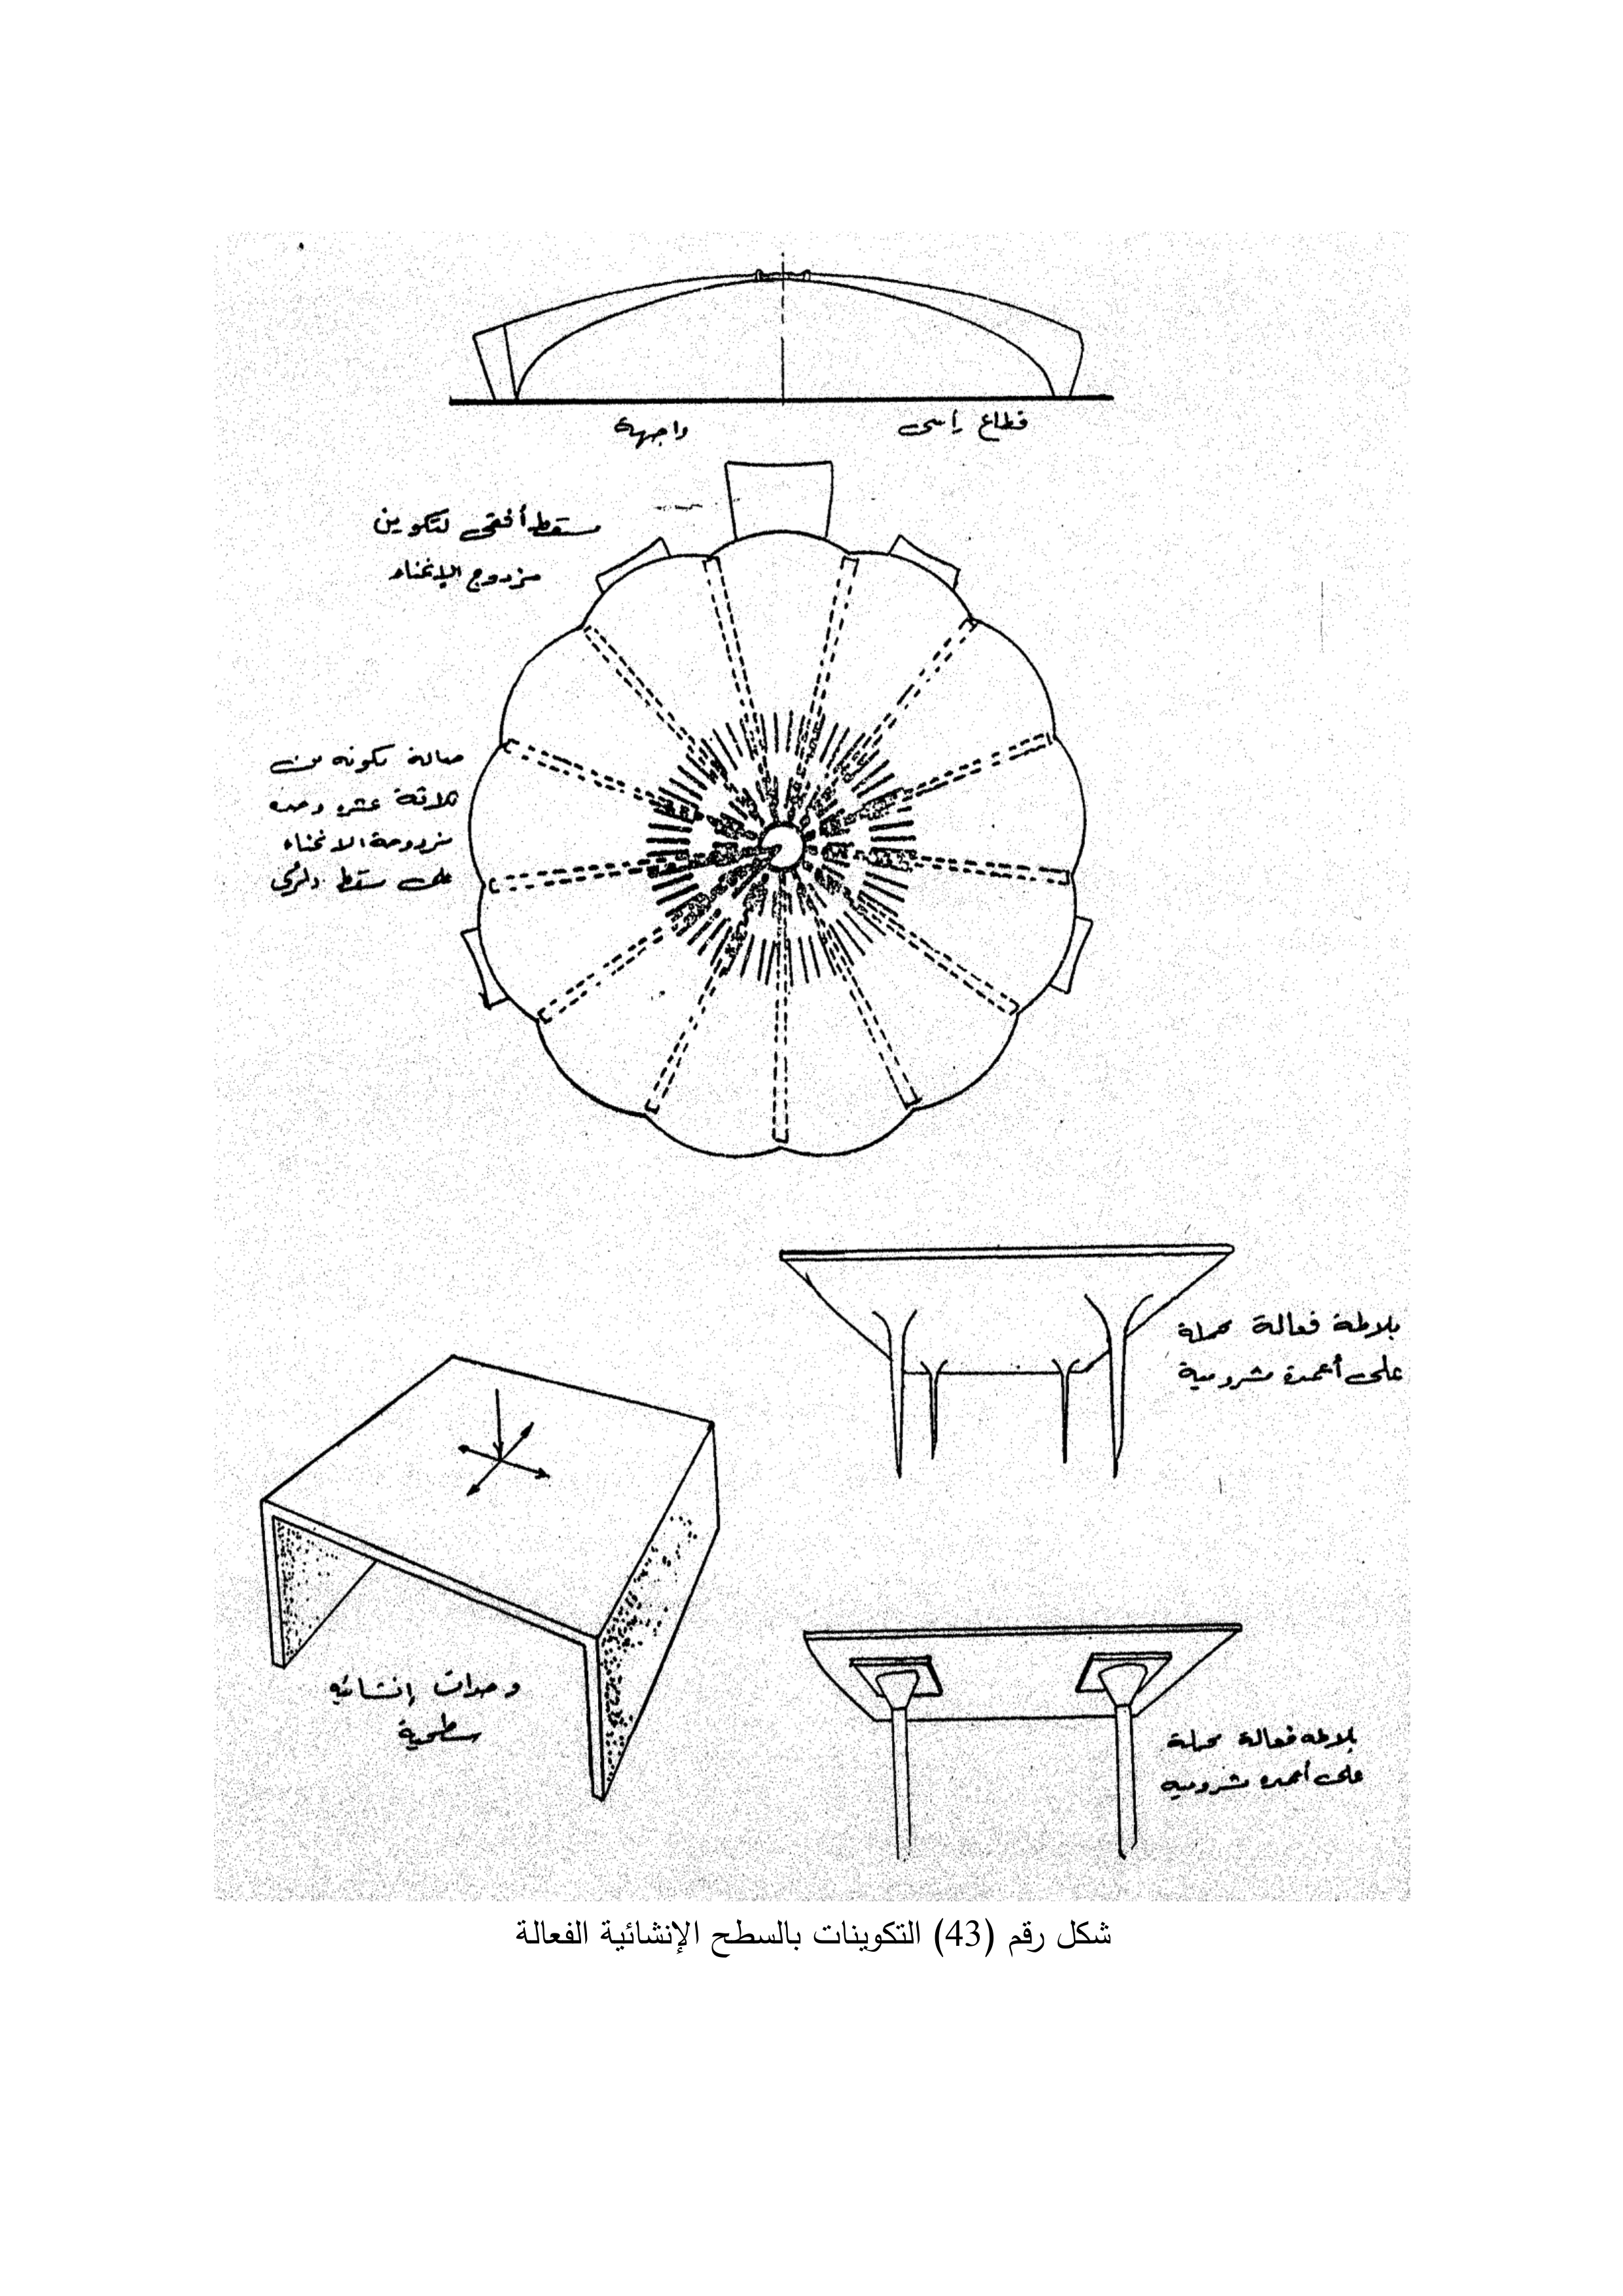 قطاع رأسى
واجهة
مسقط أفقى لتكوين
مزدوج الإنحناء
صالة مكونه من
ثلاثة عشر وحده
مزدوجة الانحناء
على مسقط دائرى
بلاطة فعالة محملة
على أعمدة مشرومية
وحدات إنشائيه
سطحية
بلاطه فعالة محملة
على أعمده مشروميه
شكل رقم (43) التكوينات بالسطح الإنشائية الفعالة